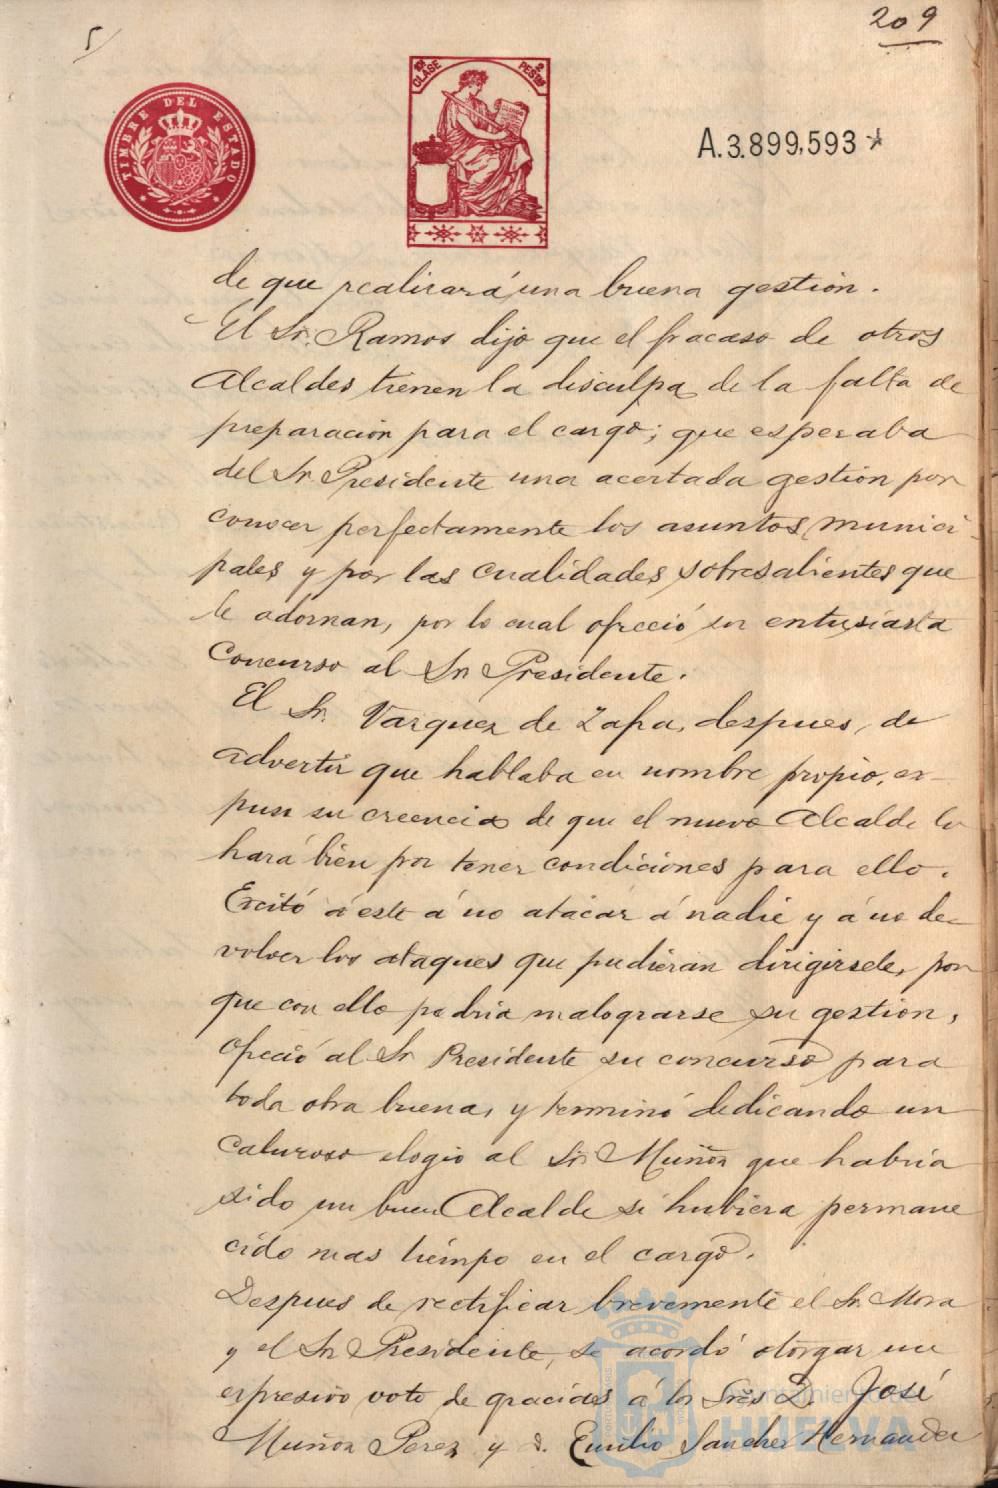 5/
209
TIMBRE DEL ESTADO
10ª CLASE
2 PESTAS
A.3.899,593 *
de que realizará una buena gestión.
El Sr. Ramos dijo que el fracaso de otros
Alcaldes tienen la disculpa de la falta de
preparación para el cargo; que esperaba
del Sr Presidente una acertada gestión por
conocer perfectamente los asuntos munici-
pales y por las cualidades sobresalientes que
le adornan, por lo cual ofreció su entusiasta
Concurso al Sr Presidente.
El Sr. Vazquez de Zafra, despues, de
advertir que hablaba en nombre propio, ex-
puso su creencia de que el nuevo Alcalde lo
hará bien por tener condiciones para ello.
Excitó á este á no atacar á nadie y á no de-
volver los ataques que pudieran dirigirsele, por
que con ello podria malograrse su gestión,
ofreció al Sr Presidente su concurso para
toda obra buena, y terminó dedicando un
caluroso elogio al Sr. Muñoz que habria
sido un buen Alcalde si hubiera permane
cido mas tiempo en el cargo.
Despues de rectificar brevemente el Sr. Mora
y el Sr Presidente, se acordó otorgar un
expresivo voto de gracias á los Sres D. José
Muñoz Perez y D. Emilio Sanchez Hernandez
Ayuntamiento de
HUELVA